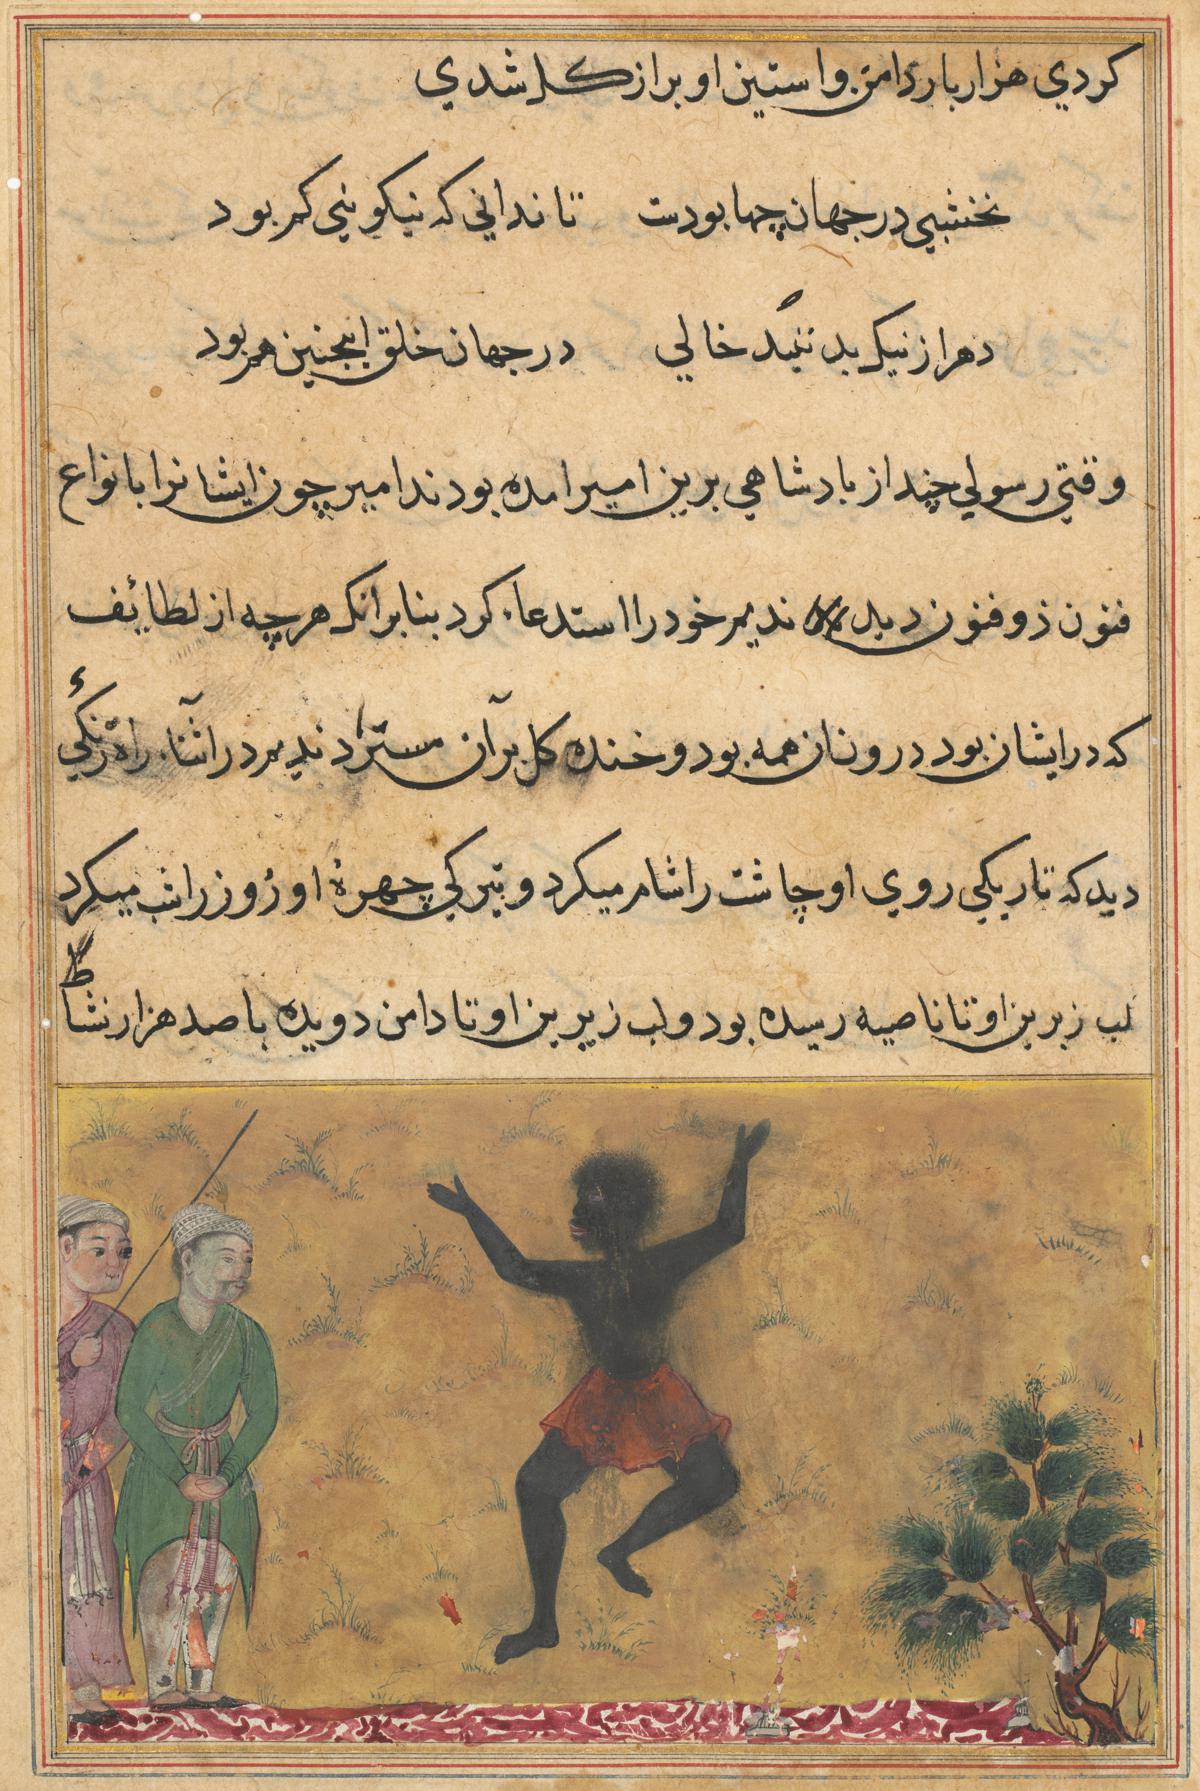 كردي هزار بار دامن و استين او بر از كل شدي
نخشبي در جهان چها بودست تا نداني كه نيكويي كم بود
دهر از نيك بد نبد خالي در جهان خلق اينچنين هم بود
وقتي رسولي چند از بادشاهي برين امير امده بودند امير چون ايشانرا بانواع
فنون ذو فنون ديد نديم خود را استدعاء كرد بنا برانك هرچه از لطايف
كه در ايشان بود درو نان همه بود و خنده كل برآن نديم در اثناء راه زنكي
ديد كه تاريكي روي او چاشت را شام ميكرد و تيركي چهرهٔ او روز را شب ميكرد
لب زبرين او تا ناصيه رسيده بود و لب زيرين او تا دامن دويده با صد هزار نشاط